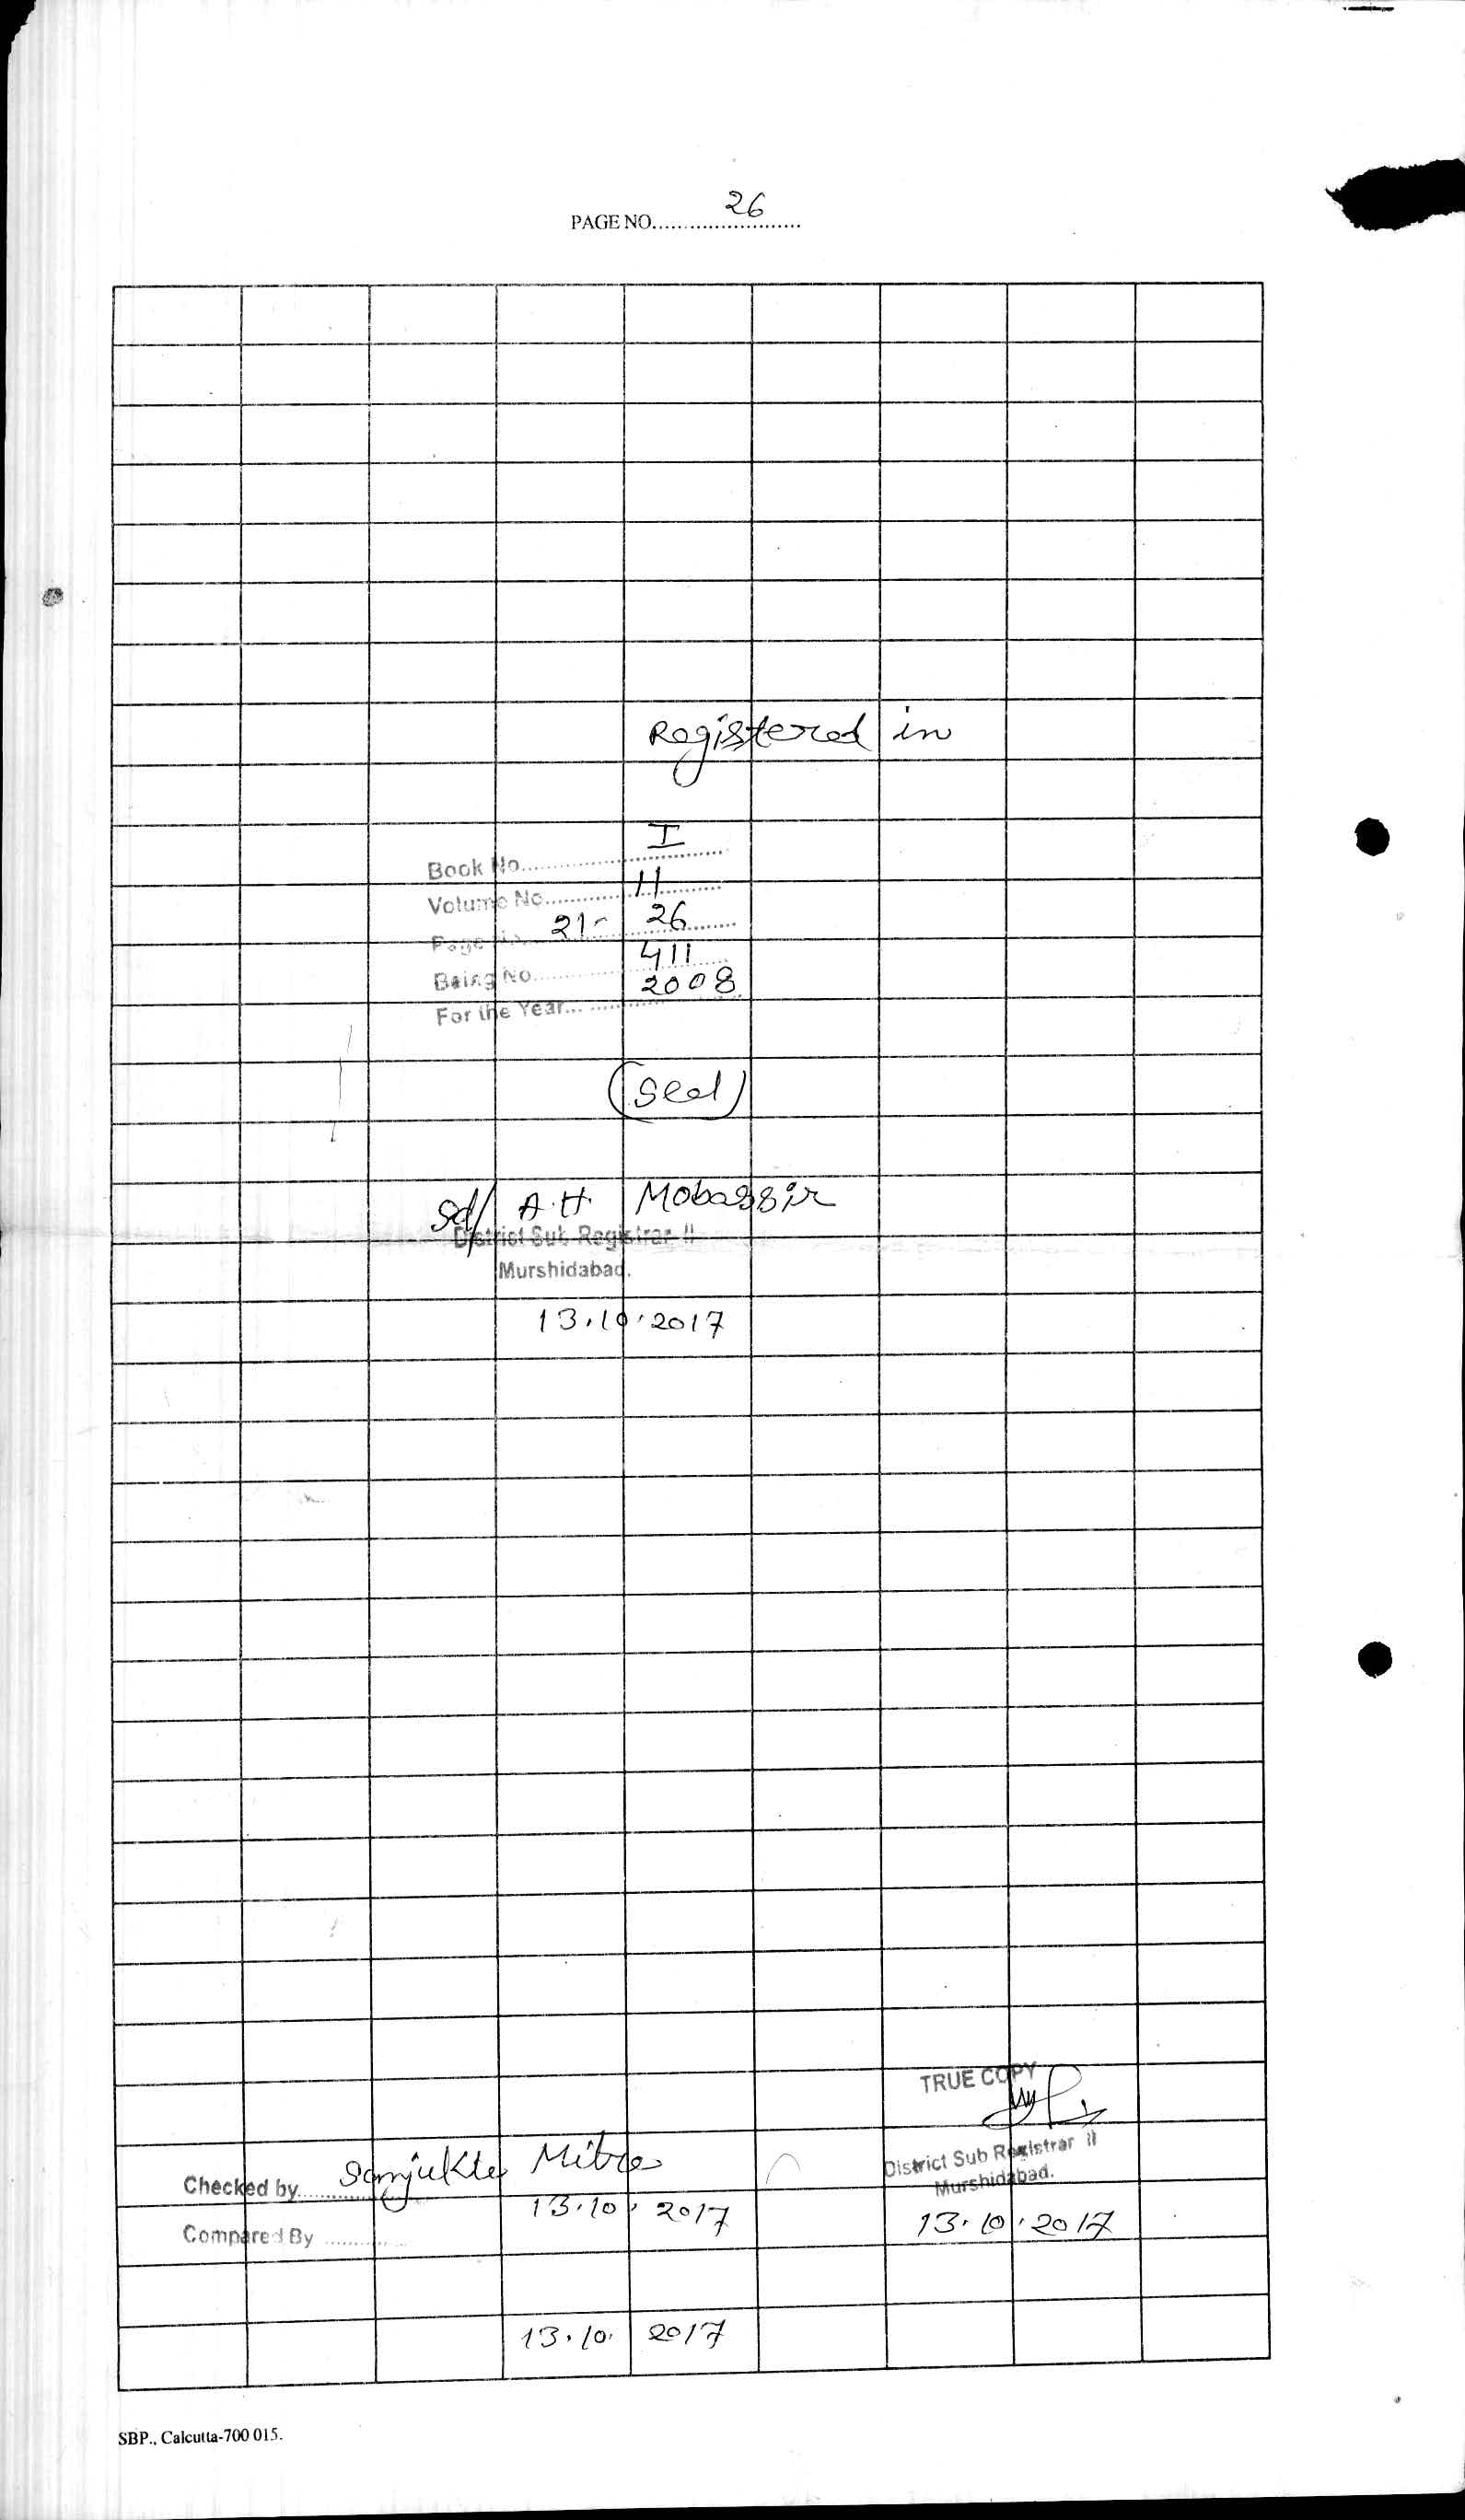 PAGE NO........................ 26
Registered in
Book No.................................. I
Volume No............................ 11
Page No. 21 - 26
Being No................................ 411
For the Year............................ 2008
(Seal)
Sd/ A.H. Mobassir
District Sub Registrar II
Murshidabad.
13.10.2017
TRUE COPY
District Sub Registrar II
Murshidabad.
13.10.2017
Checked by............ Sanjukta Mitra
13.10.2017
Compared By ..............
13.10.2017
SBP., Calcutta-700 015.